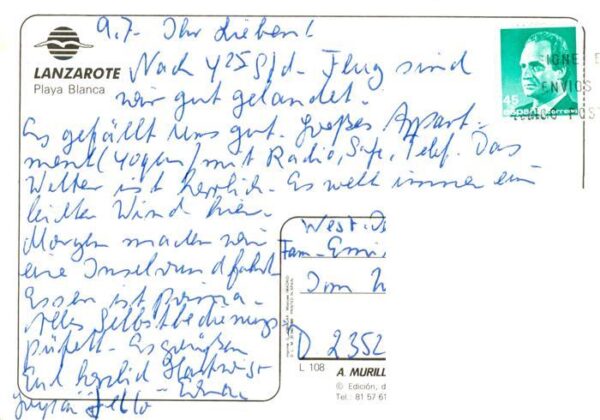 9.7. Ihr Lieben!
LANZAROTE
Playa Blanca
Nach 4 25 Std. Flug sind
wir gut gelandet.
Es gefällt uns gut. Großes Appart-
ment (40qm) mit Radio, Safe, Telef. Das
Wetter ist herrlich. Es weht immer ein
leichter Wind hier.
Morgen machen wir
eine Inselrundfahrt
Essen ist prima.
Alles Selbstbedienungs
büfett. Es grüßen
Euch herzlich
45
ENVIOS
West-
Fam.
Im
D 2352
L 108
A. MURILL
© Edición, d
Tel.: 81 57 61